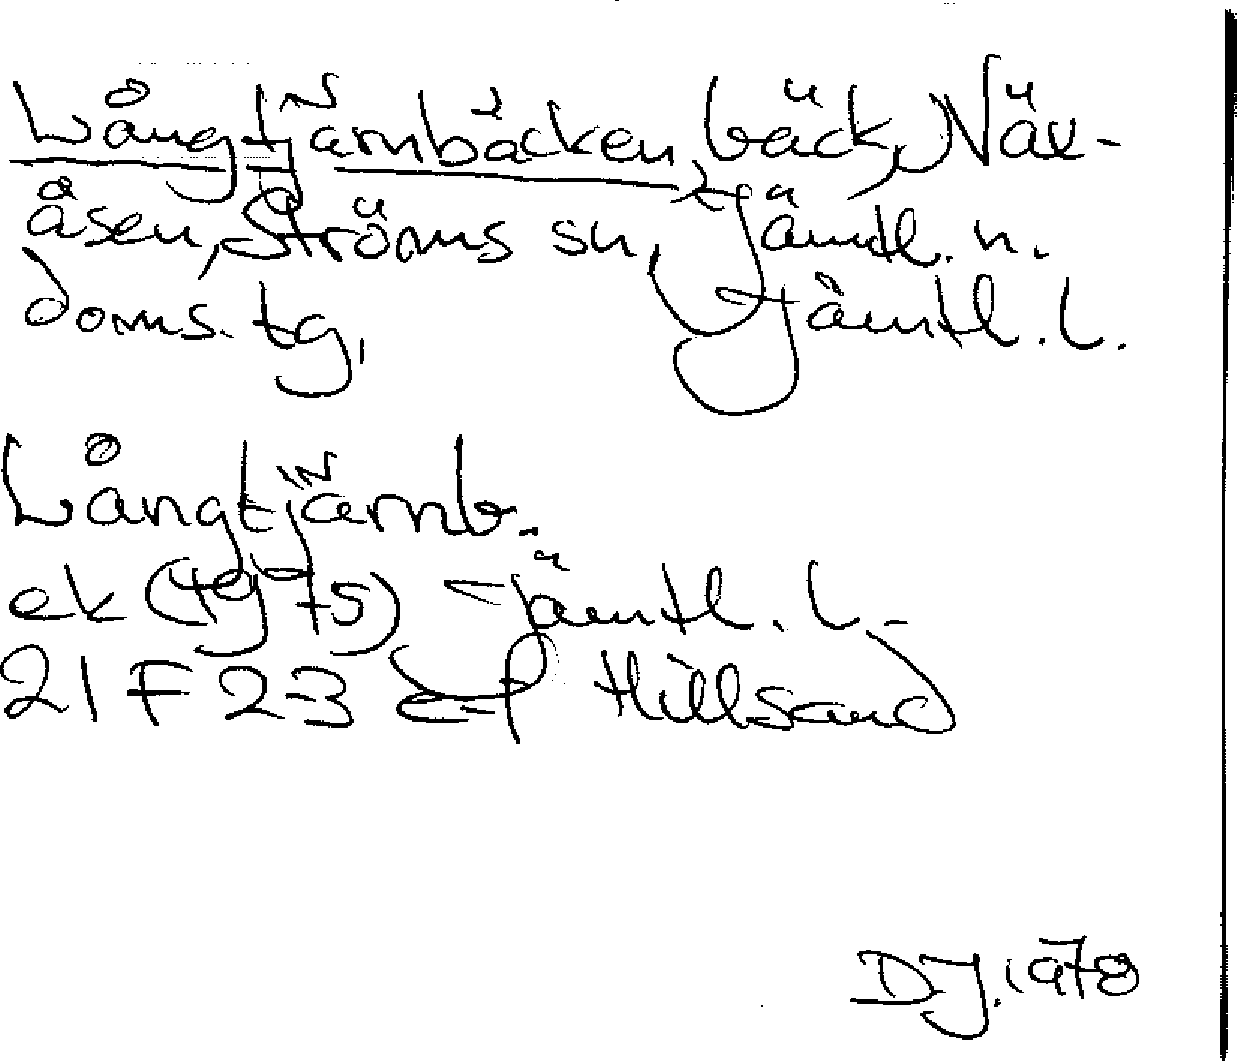 Långtjärnbäcken, bäck, Näv-
åsen, Ströms sn, Jämtl. n.
doms. tg, Jämtl. l.
Långtjärnb.
ek (1975) Jämtl. l.
21 F 23 ef Hillsand
DJ. 1978